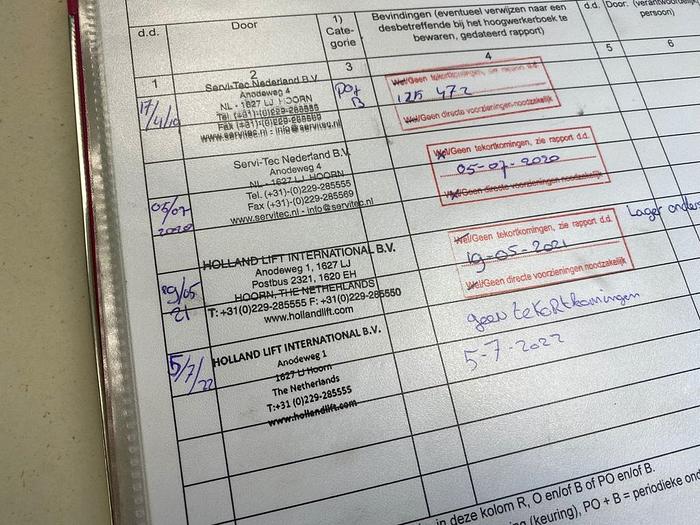 d.d.
Door
1)
Cate-
gorie
Bevindingen (eventueel verwijzen naar een
desbetreffende bij het hoogwerkerboek te
bewaren, gedateerd rapport)
d.d.
Door. (verantwoordelijk
persoon)
1
2
3
4
5
6
17/4/19
Servi-Tec Nederland B.V.
Anodeweg 4
NL - 1627 LJ HOORN
Tel. (+31)-(0)229-285555
Fax (+31)-(0)229-285569
www.servitec.nl - info@servitec.nl
PO+
B
Wel/Geen tekortkomingen, zie rapport d.d.
Wel/Geen directe voorzieningen noodzakelijk
05/07
2020
Servi-Tec Nederland B.V.
Anodeweg 4
NL - 1627 LJ HOORN
Tel. (+31)-(0)229-285555
Fax (+31)-(0)229-285569
www.servitec.nl - info@servitec.nl
Wel/Geen tekortkomingen, zie rapport d.d.
05-07-2020
Wel/Geen directe voorzieningen noodzakelijk
19/05
21
HOLLAND LIFT INTERNATIONAL B.V.
Anodeweg 1, 1627 LJ
Postbus 2321, 1620 EH
HOORN, THE NETHERLANDS
T: +31(0)229-285555 F: +31(0)229-285550
www.hollandlift.com
Wel/Geen tekortkomingen, zie rapport d.d.
19-05-2021
Wel/Geen directe voorzieningen noodzakelijk
Lager
5/7/22
HOLLAND LIFT INTERNATIONAL B.V.
Anodeweg 1
1627 LJ Hoorn
The Netherlands
T:+31 (0)229-285555
www.hollandlift.com
geen tekortkomingen
5-7-2022
in deze kolom R, O en/of B of PO en/of B.
(keuring), PO + B = periodieke